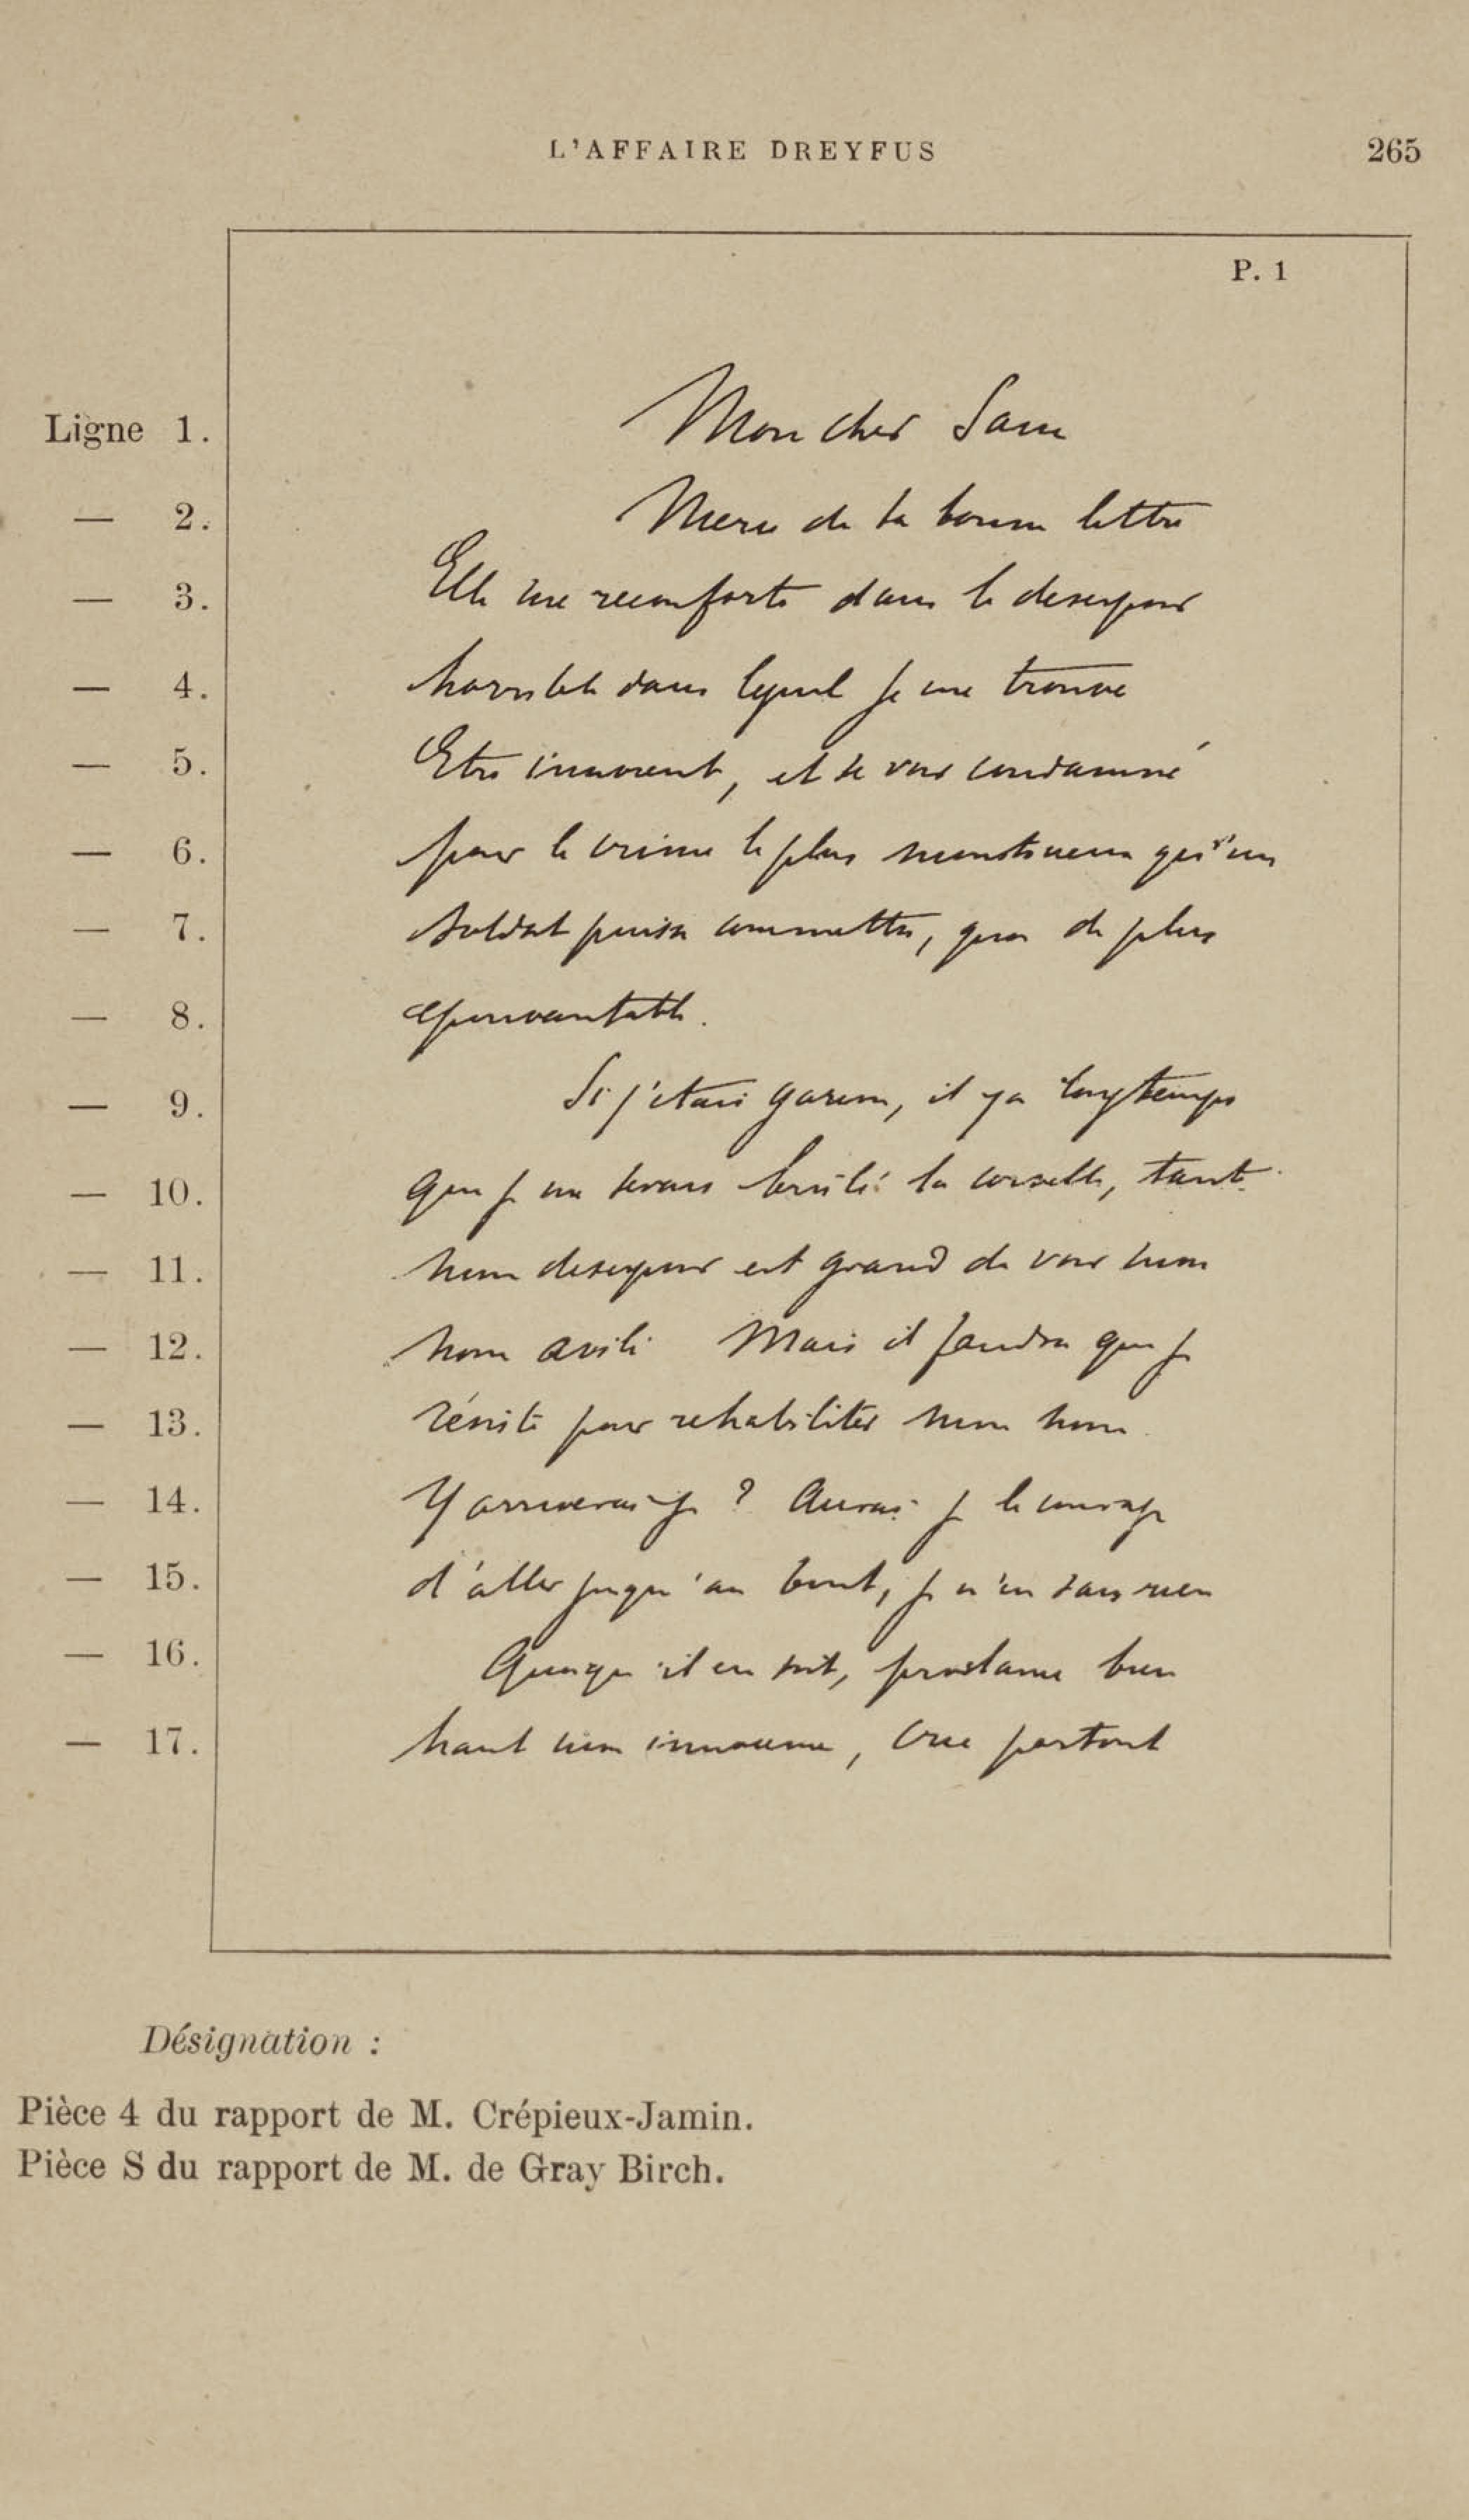 L'AFFAIRE DREYFUS 265
P. 1
Ligne 1. Mon cher Sam
— 2. Merci de ta bonne lettre
— 3. Elle me reconforte dans le desespoir
— 4. horrible dans lequel je me trouve
— 5. Etre innocent, et se voir condamné
— 6. pour le crime le plus monstrueux qu'un
— 7. soldat puisse commettre, quoi de plus
— 8. epouvantable.
— 9. Si j'étais garçon, il y a longtemps
— 10. que je me serais brûlé la cervelle, tant
— 11. mon desespoir est grand de voir mon
— 12. nom avili Mais il faudra que je
— 13. résiste pour rehabiliter mon nom
— 14. Y arriverai-je ? Aurai-je le courage
— 15. d'aller jusqu'au bout, je n'en sais rien
— 16. Quoiqu'il en soit, proclame bien
— 17. haut mon innocence, crie partout
Désignation :
Pièce 4 du rapport de M. Crépieux-Jamin.
Pièce S du rapport de M. de Gray Birch.